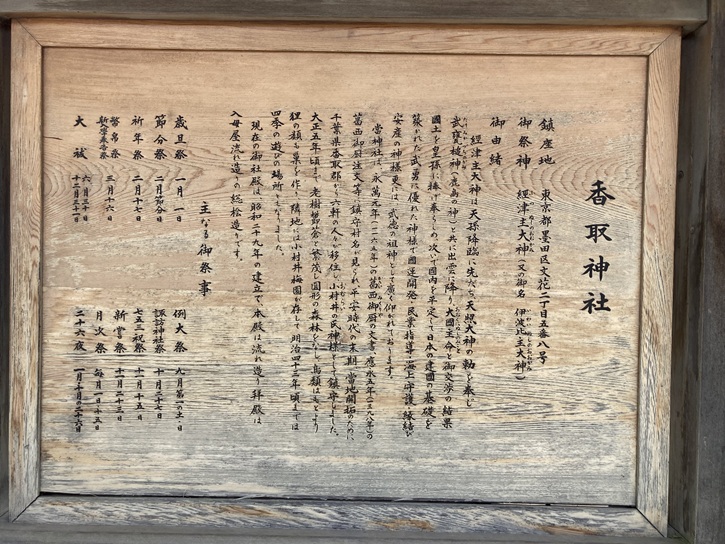 香取神社
鎮座地 東京都墨田区文花二丁目五番八号
御祭神 經津主大神(又の御名 伊波比主大神)
御由緒
經津主大神は天孫降臨に先だち天照大神の勅を奉じ
武甕槌神(鹿島の神)と共に出雲に降り、大國主命と御交渉の結果
國土を皇孫に捧げ奉らしめ、次いで国内を平定して日本の建國の基礎を
築かれた武勇に優れた神様で國運開発、民業指導、海上守護、縁結び
安産の神様更には、武徳の祖神として廣く仰がれております。
当神社は、永萬元年(一一六五年)の葛西御厨の文書、應永五年(一三九八年)の
葛西御厨注文等に鎮守村名が見られ、平安時代の末期、當地開拓のために、
千葉縣香取郡から六軒の人々が移住し小村井の氏神様として鎮守しました。
大正五年頃まで、老樹鬱蒼で繁茂し圓形の森林をなし、鳥類はもとより
狸の類も巣を作り、隣地には小村井梅園が存して明治四十三年頃までは
四季の遊びの場所でもありました。
現在の御社殿は昭和二十九年の建立で、本殿は流れ造り、拝殿は
入母屋流れ造りの総桧造りです。
主なる御祭事
歳旦祭 一月一日 例大祭 九月第一の土・日
節分祭 二月節分日 諏訪神社祭 十月二十七日
祈年祭 二月十七日 七五三祝祭 十一月十五日
幣帛祭 三月十六 新嘗祭 十一月二十三日
月次祭 毎月一日・十五日
大祓 六月三十日 十二月三十一日 二十六夜 一月・七月の二十六日